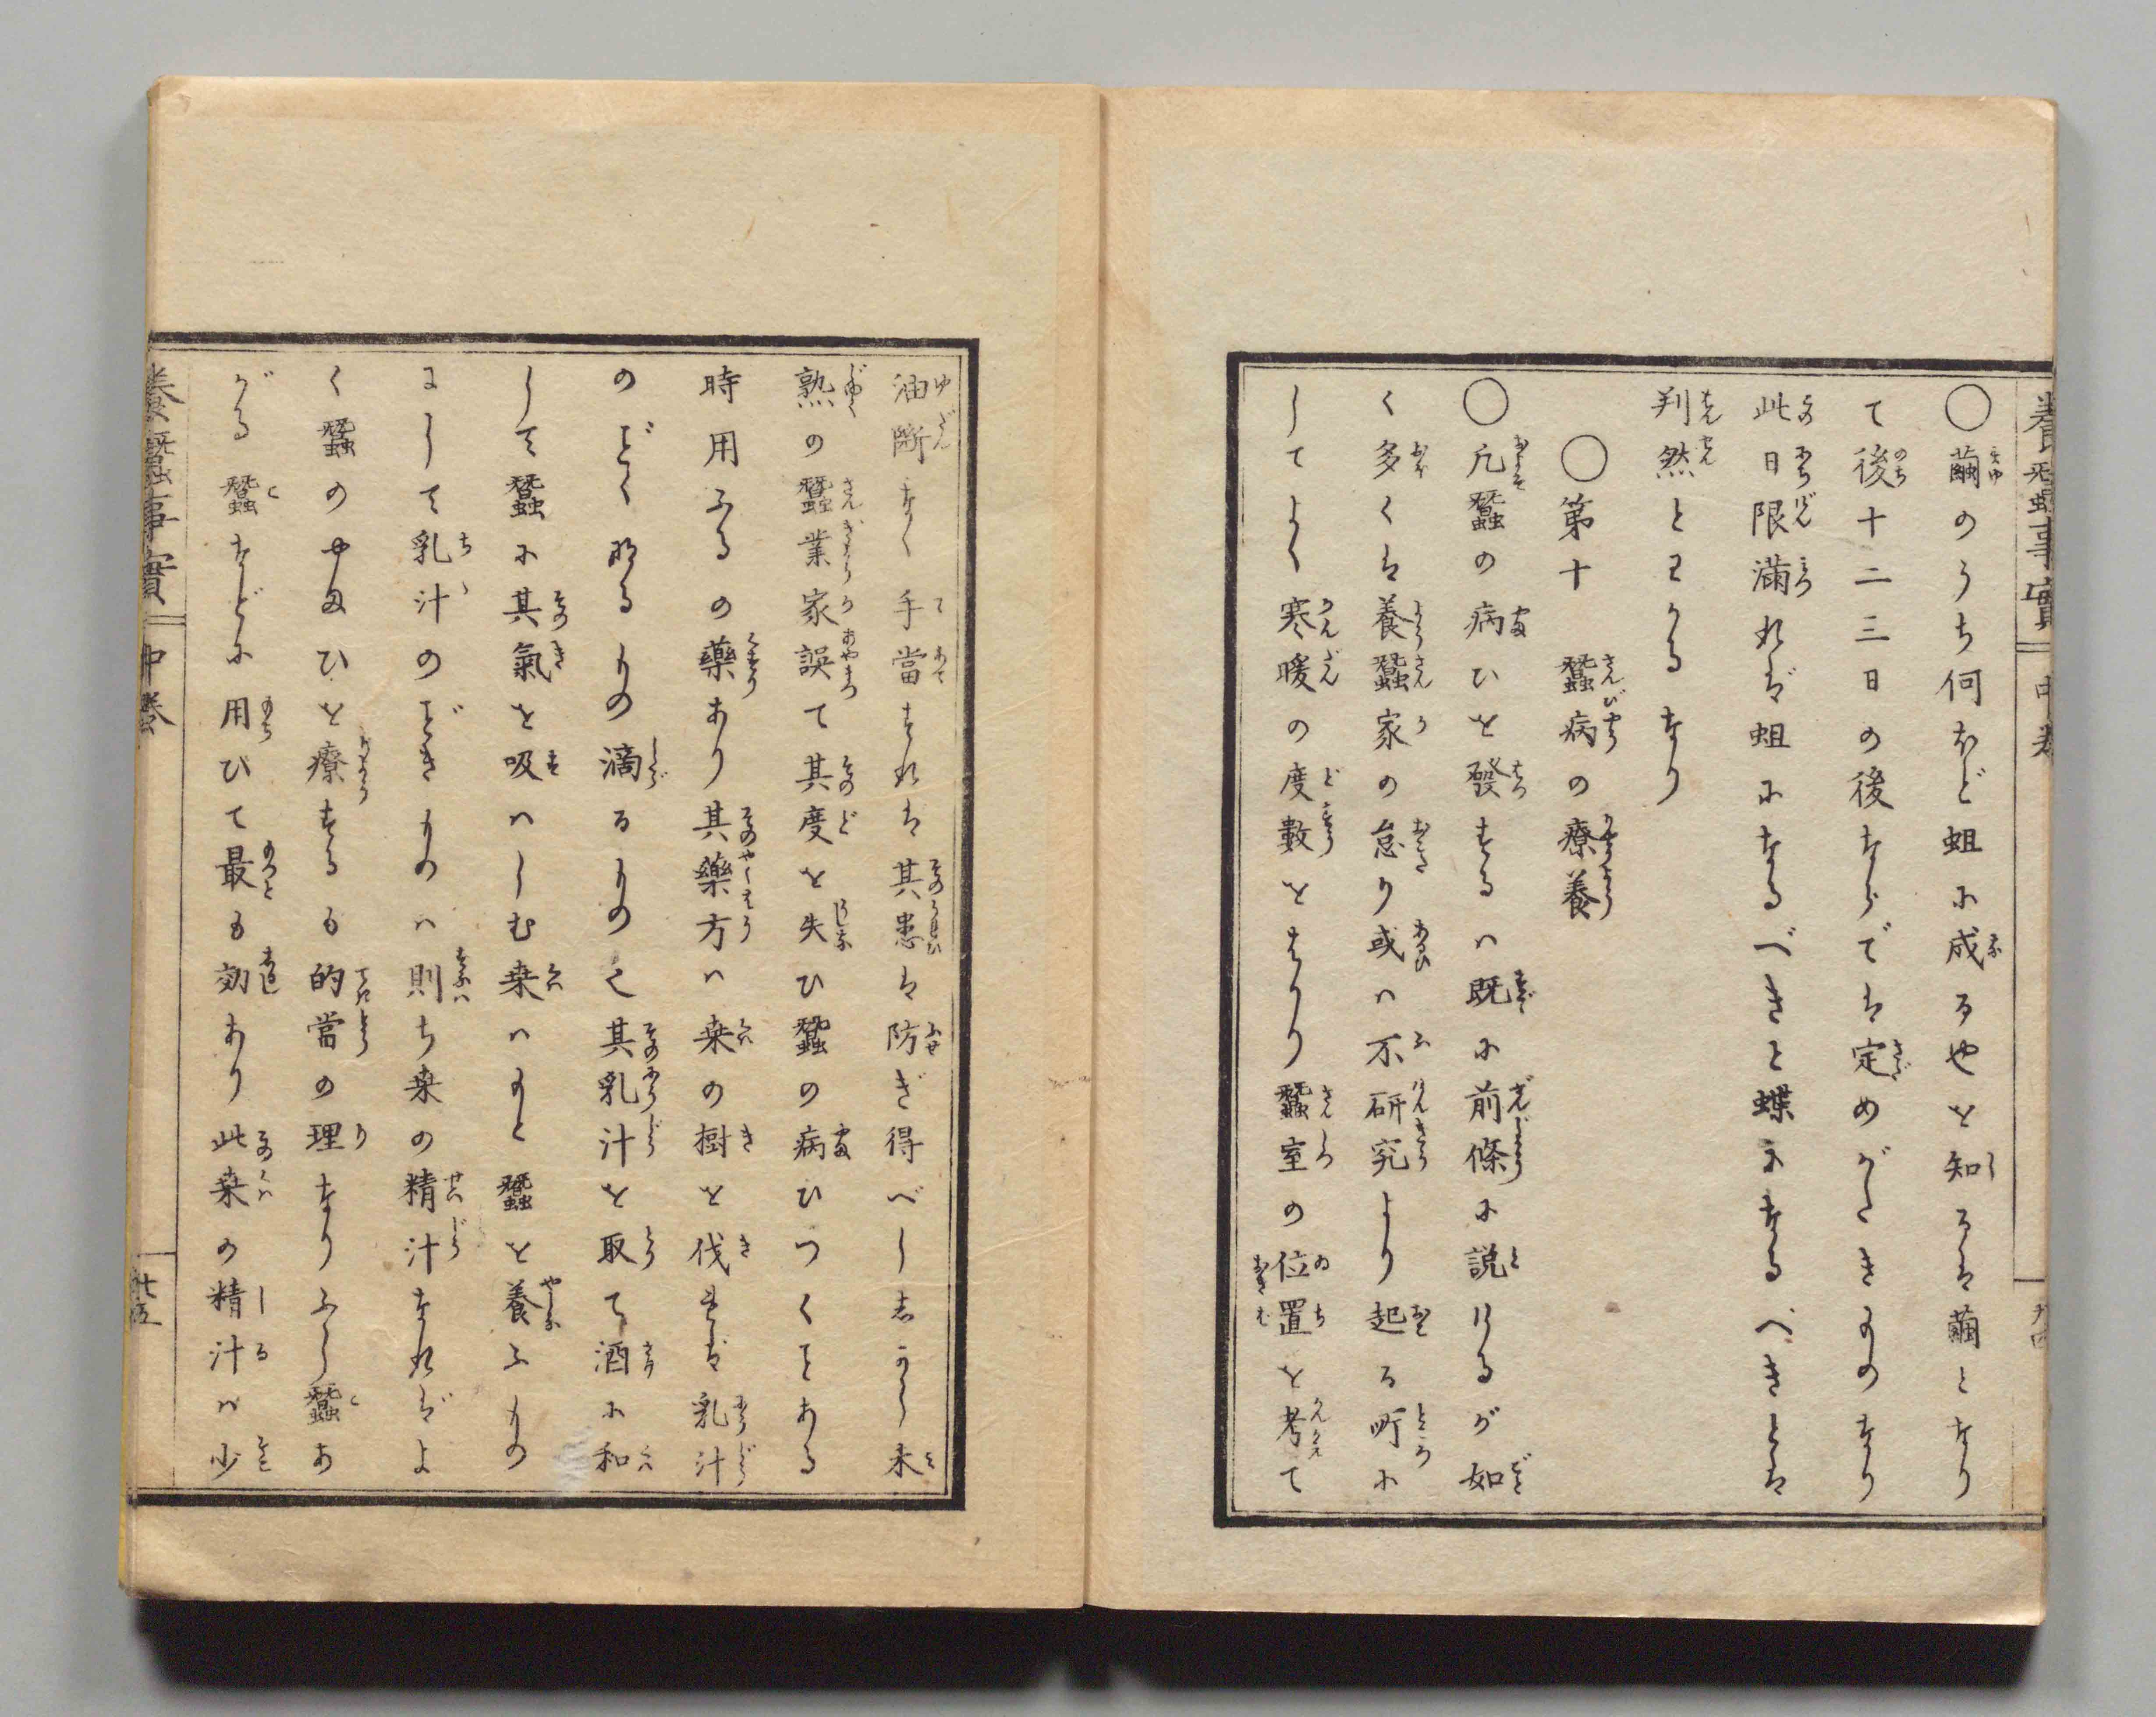 養蠶事實 中卷
○繭のうち何ほど蛆に成るやを知るは繭となり
て後十二三日の後ならでは定めがたきものなり
此日限満れば蛆になるべきと蝶になるべきとは
判然とわかるなり
○第十 蠶病の療養
○凡蠶の病ひを發するハ既に前條に説けるが如
く多くは養蠶家の怠り或ハ不研究より起る所に
してよく寒暖の度數をはかり蠶室の位置を考て
油斷なく手當すれば其患は防ぎ得べししかし未
熟の蠶業家誤て其度を失ひ蠶の病ひつくことある
時用ふるの藥あり其藥方ハ桑の樹を伐れば乳汁
のごとくなるもの滴るもの也其乳汁を取て酒に和
して蠶に其氣を吸ハしむ桑ハもと蠶を養ふもの
にして乳汁のごときものハ則ち桑の精汁なればよ
く蠶のやまひを療するも的當の理なりふし蠶あ
がる蠶などに用ひて最も効あり此桑の精汁ハ少
養蠶事實 中卷 廿五